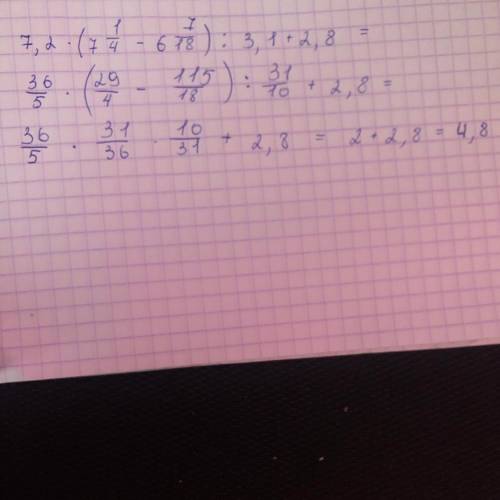 7,2 · (7 1/4 - 6 7/18) : 3,1 + 2,8 =
36/5 · (29/4 - 115/18) : 31/10 + 2,8 =
36/5 · 31/36 · 10/31 + 2,8 = 2 + 2,8 = 4,8